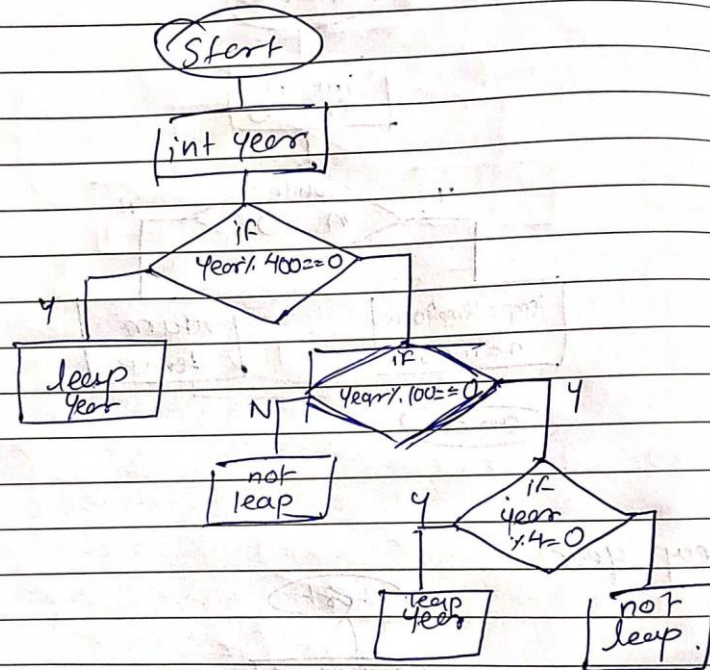 Start
int year
if
year % 400 == 0
Y
leap
year
if
year % 100 == 0
N
Y
not
leap
if
year
% 4 = 0
Y
leap
year
not
leap.